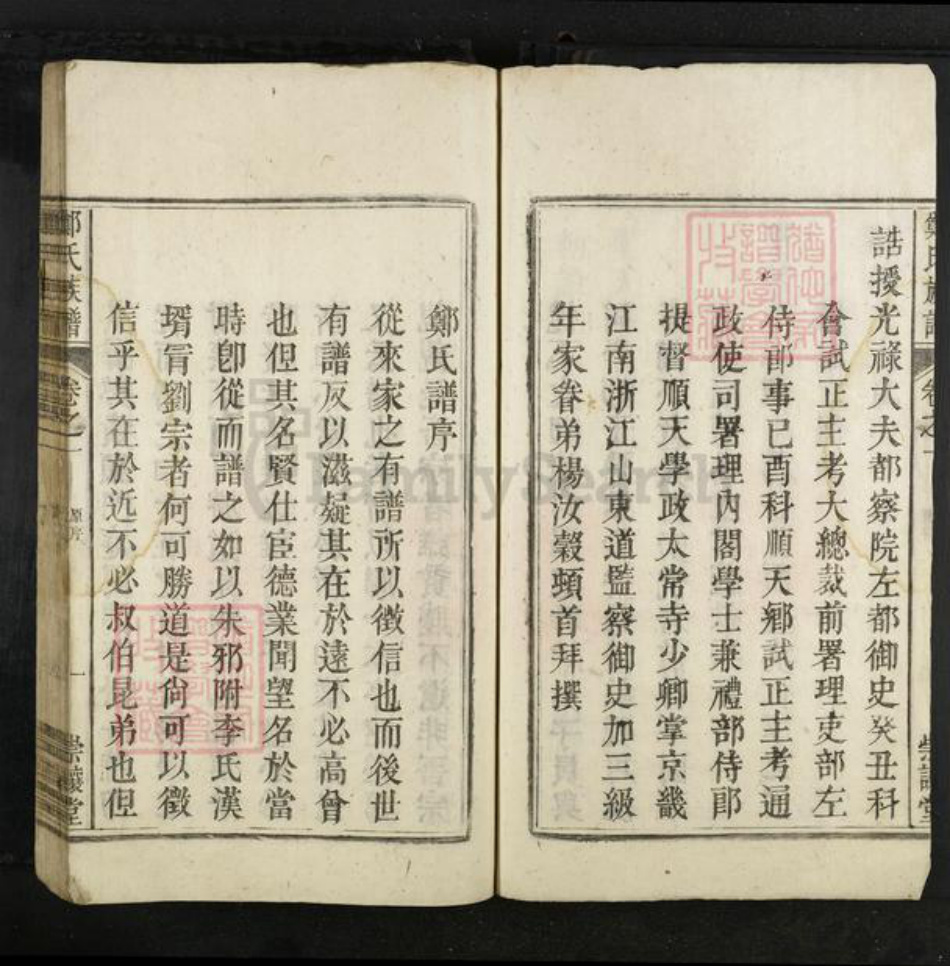 誥授光祿大夫都察院左都御史癸丑科
會試正主考大總裁前署理吏部左
侍郎事已酉科順天鄉試正主考通
政使司署理內閣學士兼禮部侍郎
提督順天學政太常寺少卿掌京畿
江南浙江山東道監察御史加三級
年家眷弟楊汝穀頓首拜撰
鄭氏譜序
從來家之有譜所以徵信也而後世
有譜反以滋疑其在於遠不必高曾
也但其名賢仕宦德業聞望名於當
時卽從而譜之如以朱邪附李氏漢
壻冐劉宗者何可勝道是尙可以徵
信乎其在於近不必叔伯昆弟也但
鄭氏族譜 卷之一 原序 一 崇讓堂
FamilySearch